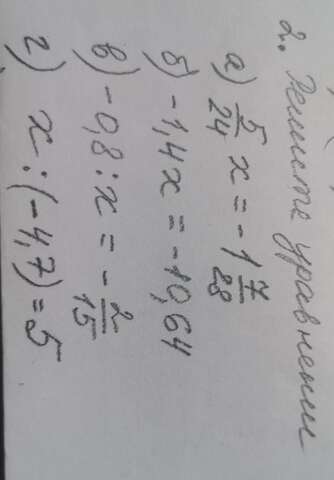 2. Решите уравнении
а) 5/24 x = -1 7/28
б) -1,4x = -10,64
в) -0,8 : x = -2/15
г) x : (-4,7) = 5